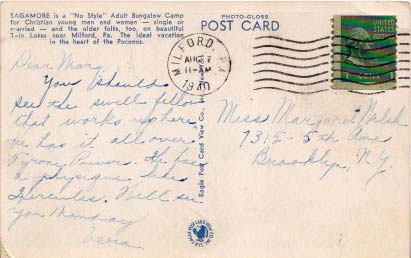 SAGAMORE is a "No Style" Adult Bungalow Camp
for Christian young men and women — single or
married — and the older folks, too, on beautiful
Twin Lakes near Milford, Pa. The ideal vacation
in the heart of the Poconos.
PHOTO-GLOSS
POST CARD
MILFORD, PA.
AUG 7
11-AM
1 CENT
Dear Marg
You should
see the swell fellow
that works up here
He has it all over
Tyrone Powers. He has
a physique like
Hercules. Will see
you Monday
Vera
Eagle Post Card View Co.
Miss Margaret Welch
7315 - 5th Ave
Brooklyn, N.Y.